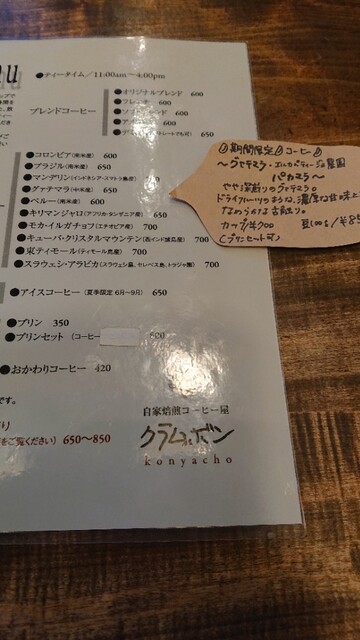 nu
●ティータイム／11:00am～4:00pm
ブレンドコーヒー
●オリジナルブレンド 600
●コロンビア(南米産) 600
●ブラジル(南米産) 600
●マンデリン(インドネシア・スマトラ島産) 650
●グァテマラ(中米産) 650
●ペルー(南米産) 600
●キリマンジャロ(アフリカ・タンザニア産) 650
●モカイルガチョフ(エチオピア産) 700
●キューバ・クリスタルマウンテン(西インド諸島産) 700
●東ティモール(ティモール島産) 700
●スラウェシ・アラビカ(スラウェシ島、セレベス島、トラジャ園) 700
●アイスコーヒー(夏季限定 6月～9月) 650
●プリン 350
●プリンセット(コーヒー
●おかわりコーヒー 420
です。
をご覧ください) 650～850
自家焙煎コーヒー屋
クラムボン
konyacho
期間限定 コーヒー
～グァテマラ・エルインヘルト農園
パカマラ～
やや深煎りのグァテマラ。
ドライフルーツのような、濃厚な甘い味
カップ
豆100g/
(プリンセット可)